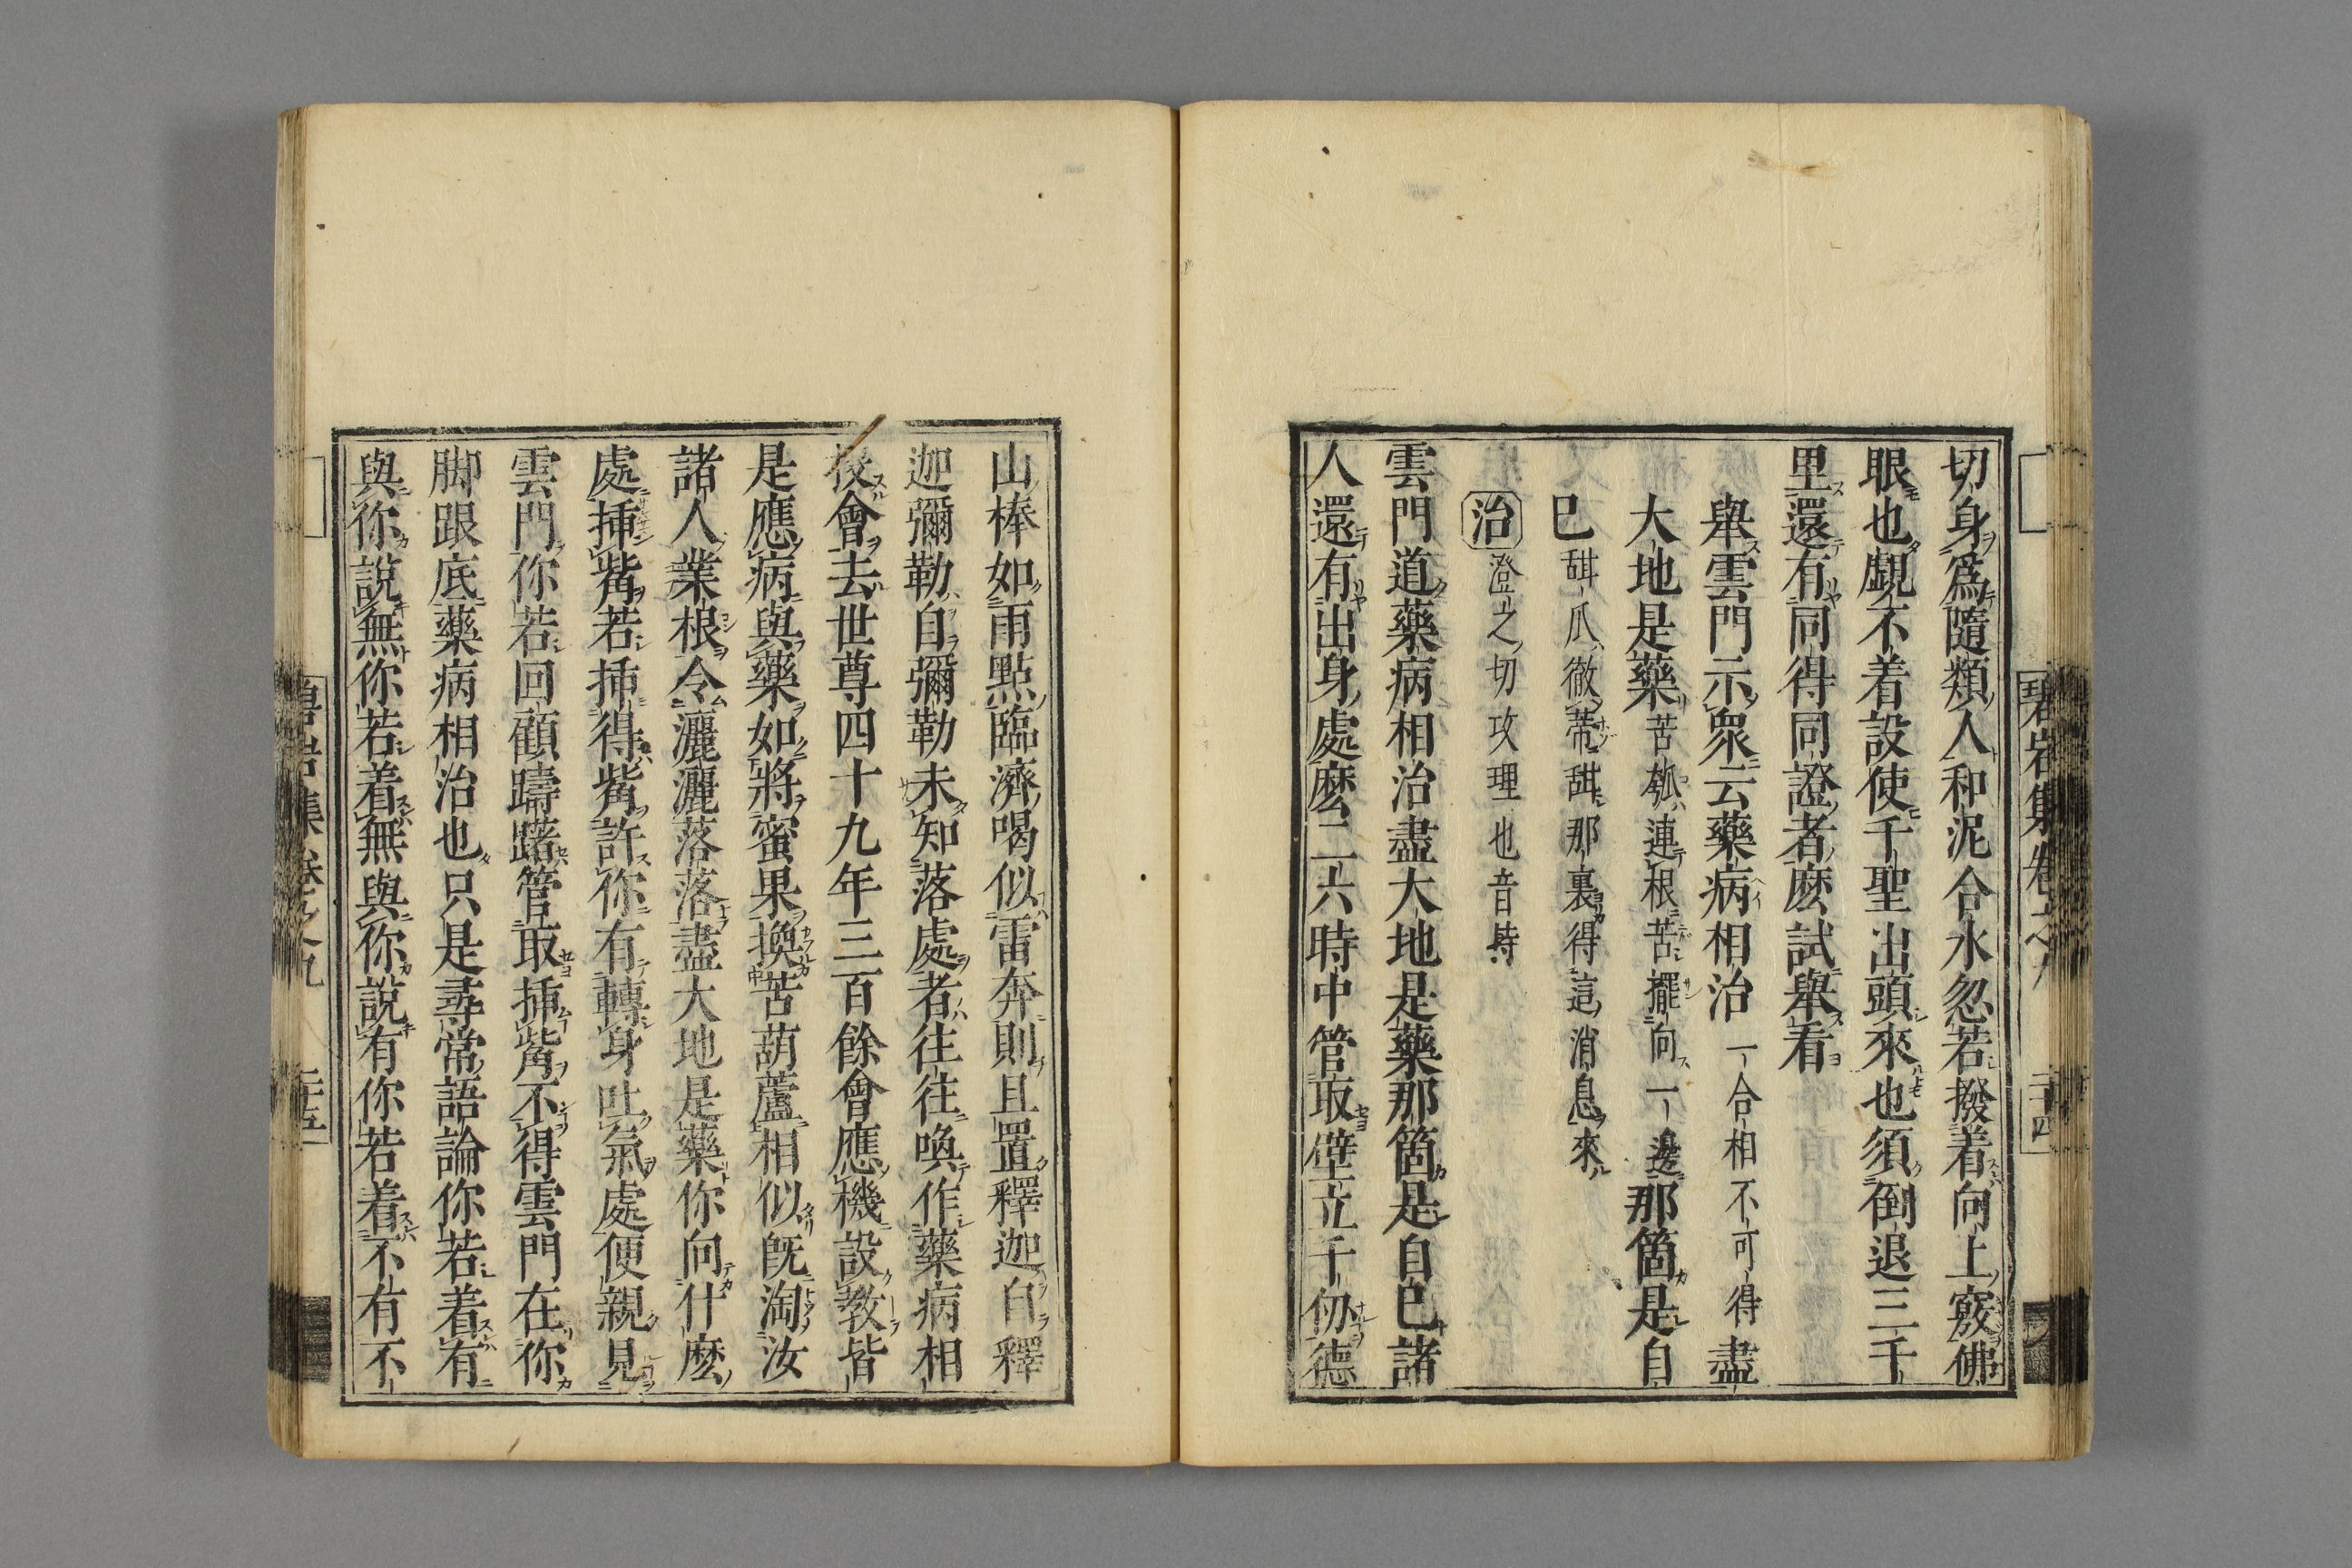 切身爲隨類人和泥合水忽若撥着向上竅佛
眼也覰不着設使千聖出頭來也須倒退三千
里還有同得同證者麽試舉看
舉雲門示衆云藥病相治一合相不可得盡
大地是藥苦瓠連根苦擺向一邊那箇是自
己甜瓜徹蒂甜那裏得這消息來
治澄之切攻理也音持
雲門道藥病相治盡大地是藥那箇是自己諸
人還有出身處麽二六時中管取壁立千仞德
山棒如雨點臨濟喝似雷奔則且置釋迦自釋
迦彌勒自彌勒未知落處者往往喚作藥病相
投會去世尊四十九年三百餘會應機設教皆
是應病與藥如將蜜果換苦葫蘆相似旣淘汝
諸人業根令灑灑落落盡大地是藥你向什麽
處揷觜若揷得觜許你有轉身吐氣處便親見
雲門你若回顧躊躇管取揷觜不得雲門在你
脚跟底藥病相治也只是尋常語論你若着有
與你說無你若着無與你說有你若着不有不
碧岩集卷之九
二十四
二十五